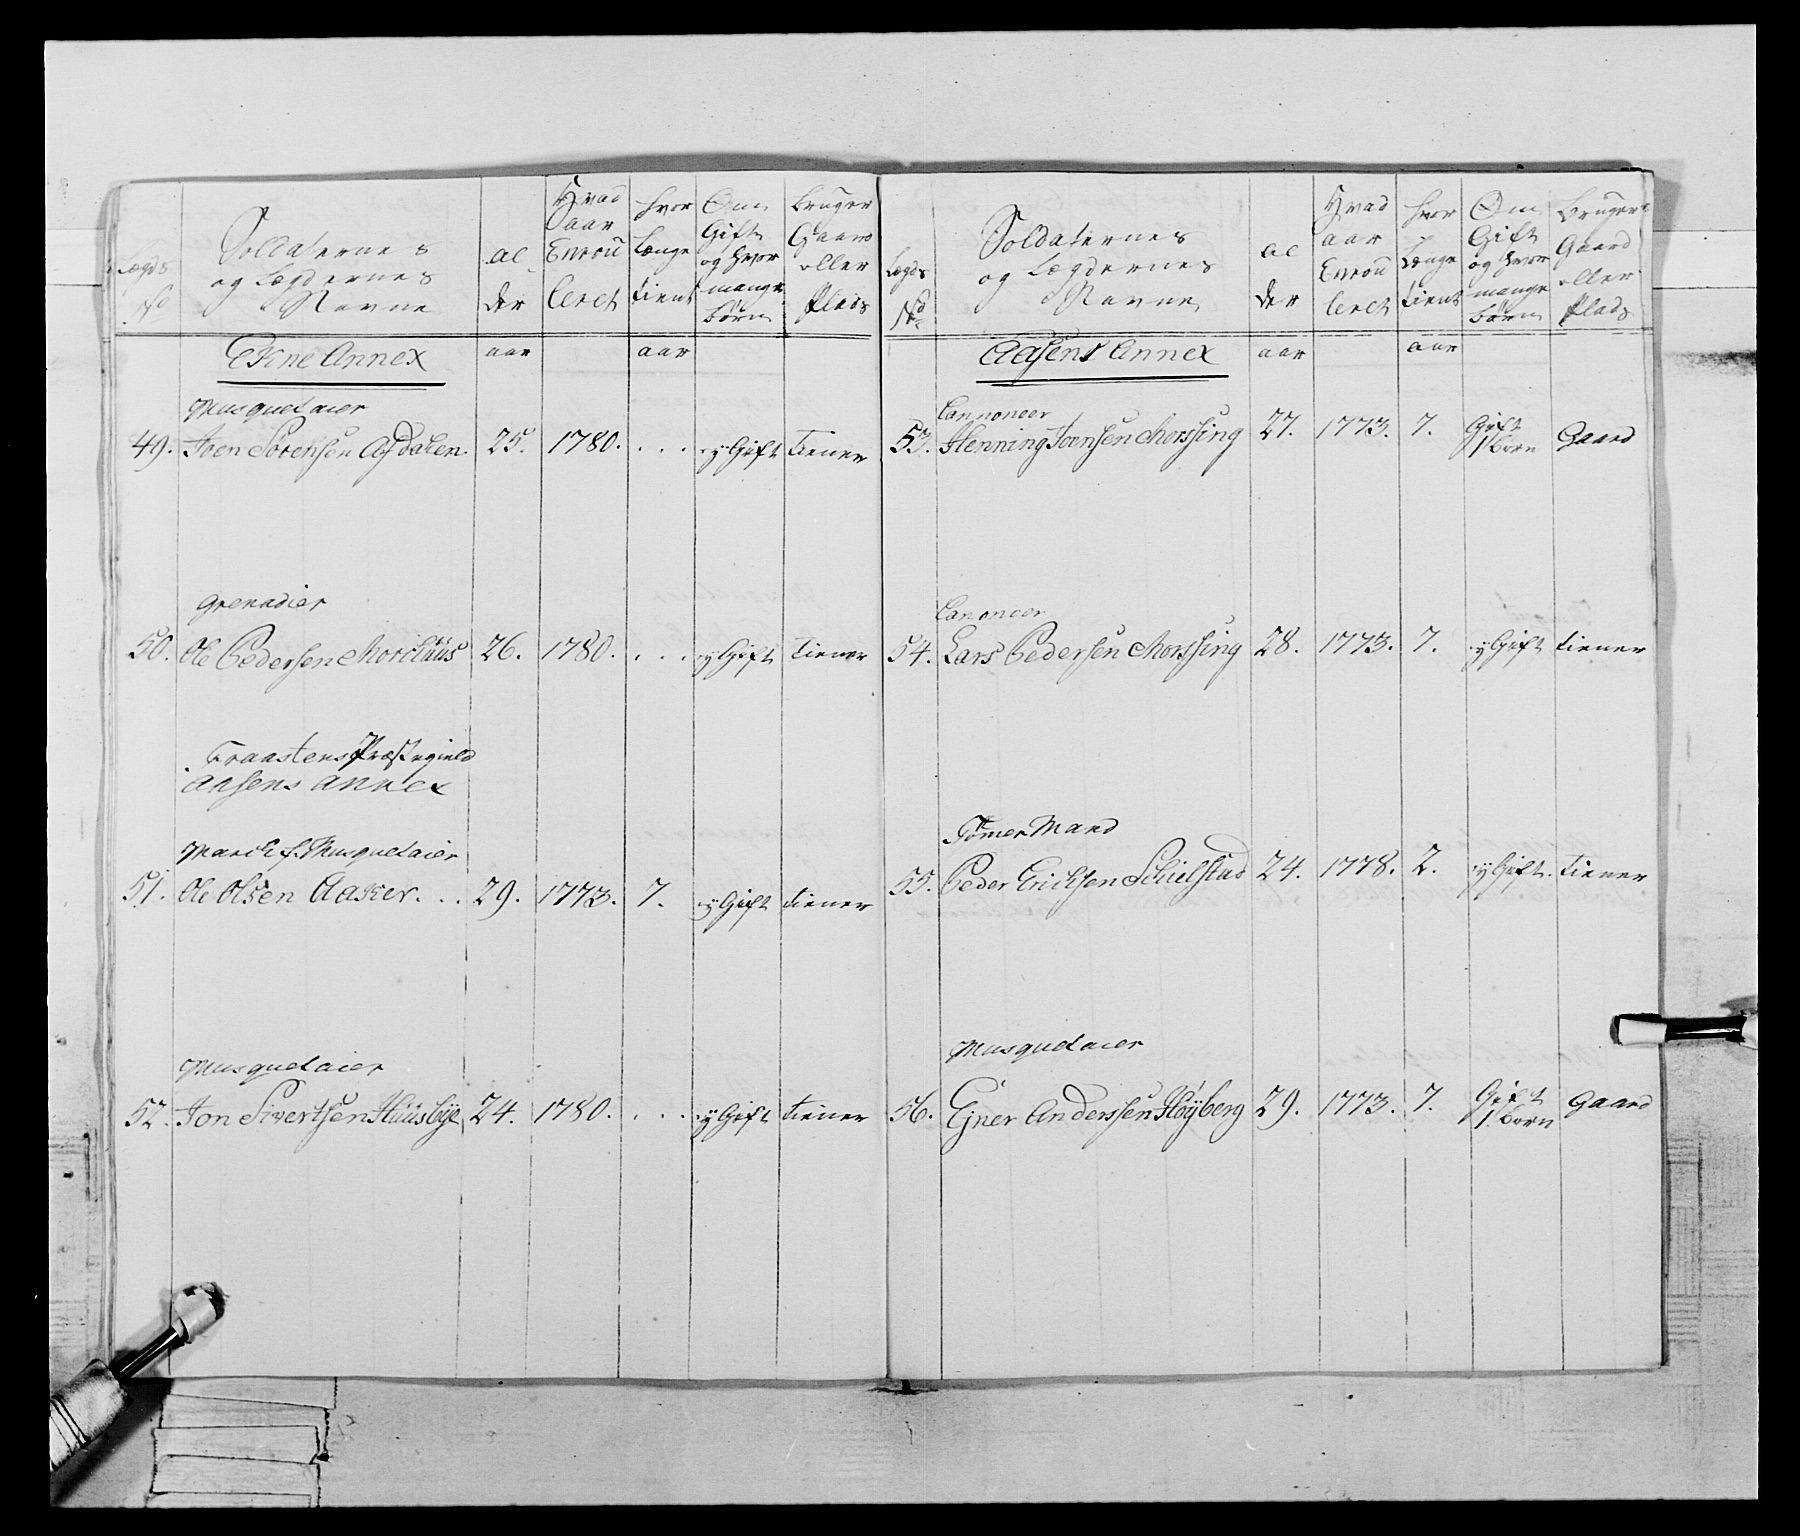 Lægds No | Soldaternes og Lægdernes Navne | Al der | Hvad Aar Enrou leret | hvor Længe tient | Om Gift og hvor mange børn | bruger Gaard eller Plads
Ekne Annex | aar | | aar
Musquetaier
49. Joen Sørensen Aasdalen. 25. 1780. . . . yGift tiener
Grenadier
50. Ole Pedersen Morcluus 26. 1780. . . . yGift tiener
Fraastens Præstegield
Aasens Annex
March f. Musquetaier
51. Ole Olsen Aaker. . . 29. 1773. 7. yGift tiener
Musquetaier
52. Jon Sivertsen Huusbye 24. 1780. . . . yGift tiener
Lægds No | Soldaternes og Lægdernes Navne | Al der | Hvad aar Enrou leret | hvor Længe tient | Om Gift og hvor mange børn | bruger Gaard eller Plads
Aasens Annex | aar | | aar
Cannoneer
53. Henning Joensen Morssing 27. 1773. 7. Gift 1 børn Gaard
Canoneer
54. Lars Pedersen Morssing 28. 1773. 7. yGift tiener
Tømer Mand
55. Peder Erichsen Schielstad 24. 1778. 2. yGift. tiener
Musquetaier
56. Ejner Anderssen Høyberg 29. 1773. 7. Gift 1 børn Gaard